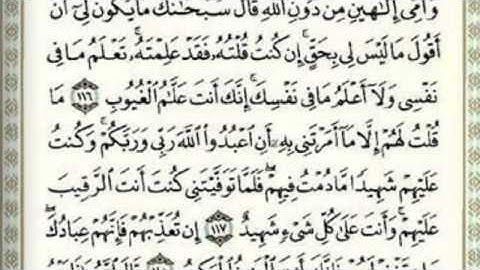 وَأُمِّيَ إِلَٰهَيْنِ مِن دُونِ ٱللَّهِ قَالَ سُبْحَٰنَكَ مَا يَكُونُ لِيٓ أَنْ
أَقُولَ مَا لَيْسَ لِي بِحَقٍّ إِن كُنتُ قُلْتُهُۥ فَقَدْ عَلِمْتَهُۥ تَعْلَمُ مَا فِي
نَفْسِي وَلَآ أَعْلَمُ مَا فِي نَفْسِكَ إِنَّكَ أَنتَ عَلَّٰمُ ٱلْغُيُوبِ ١١٦ مَا
قُلْتُ لَهُمْ إِلَّا مَآ أَمَرْتَنِي بِهِۦٓ أَنِ ٱعْبُدُوا۟ ٱللَّهَ رَبِّي وَرَبَّكُمْ وَكُنتُ
عَلَيْهِمْ شَهِيدًا مَّا دُمْتُ فِيهِمْ فَلَمَّا تَوَفَّيْتَنِي كُنتَ أَنتَ ٱلرَّقِيبَ
عَلَيْهِمْ وَأَنتَ عَلَىٰ كُلِّ شَيْءٍ شَهِيدٌ ١١٧ إِن تُعَذِّبْهُمْ فَإِنَّهُمْ عِبَادُكَ